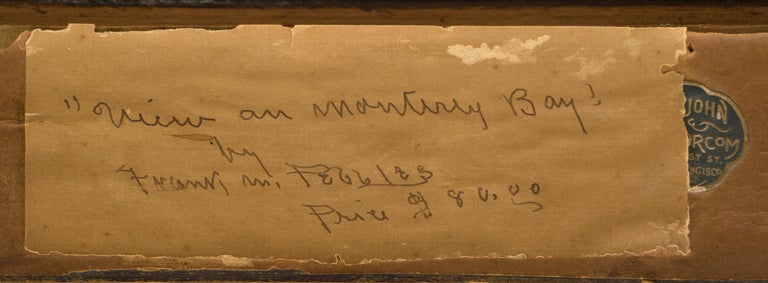 "View on Monterey Bay"
by
Frank M. Peebles
Price $80.00
JOHN
&
ST ST.
NCISCO